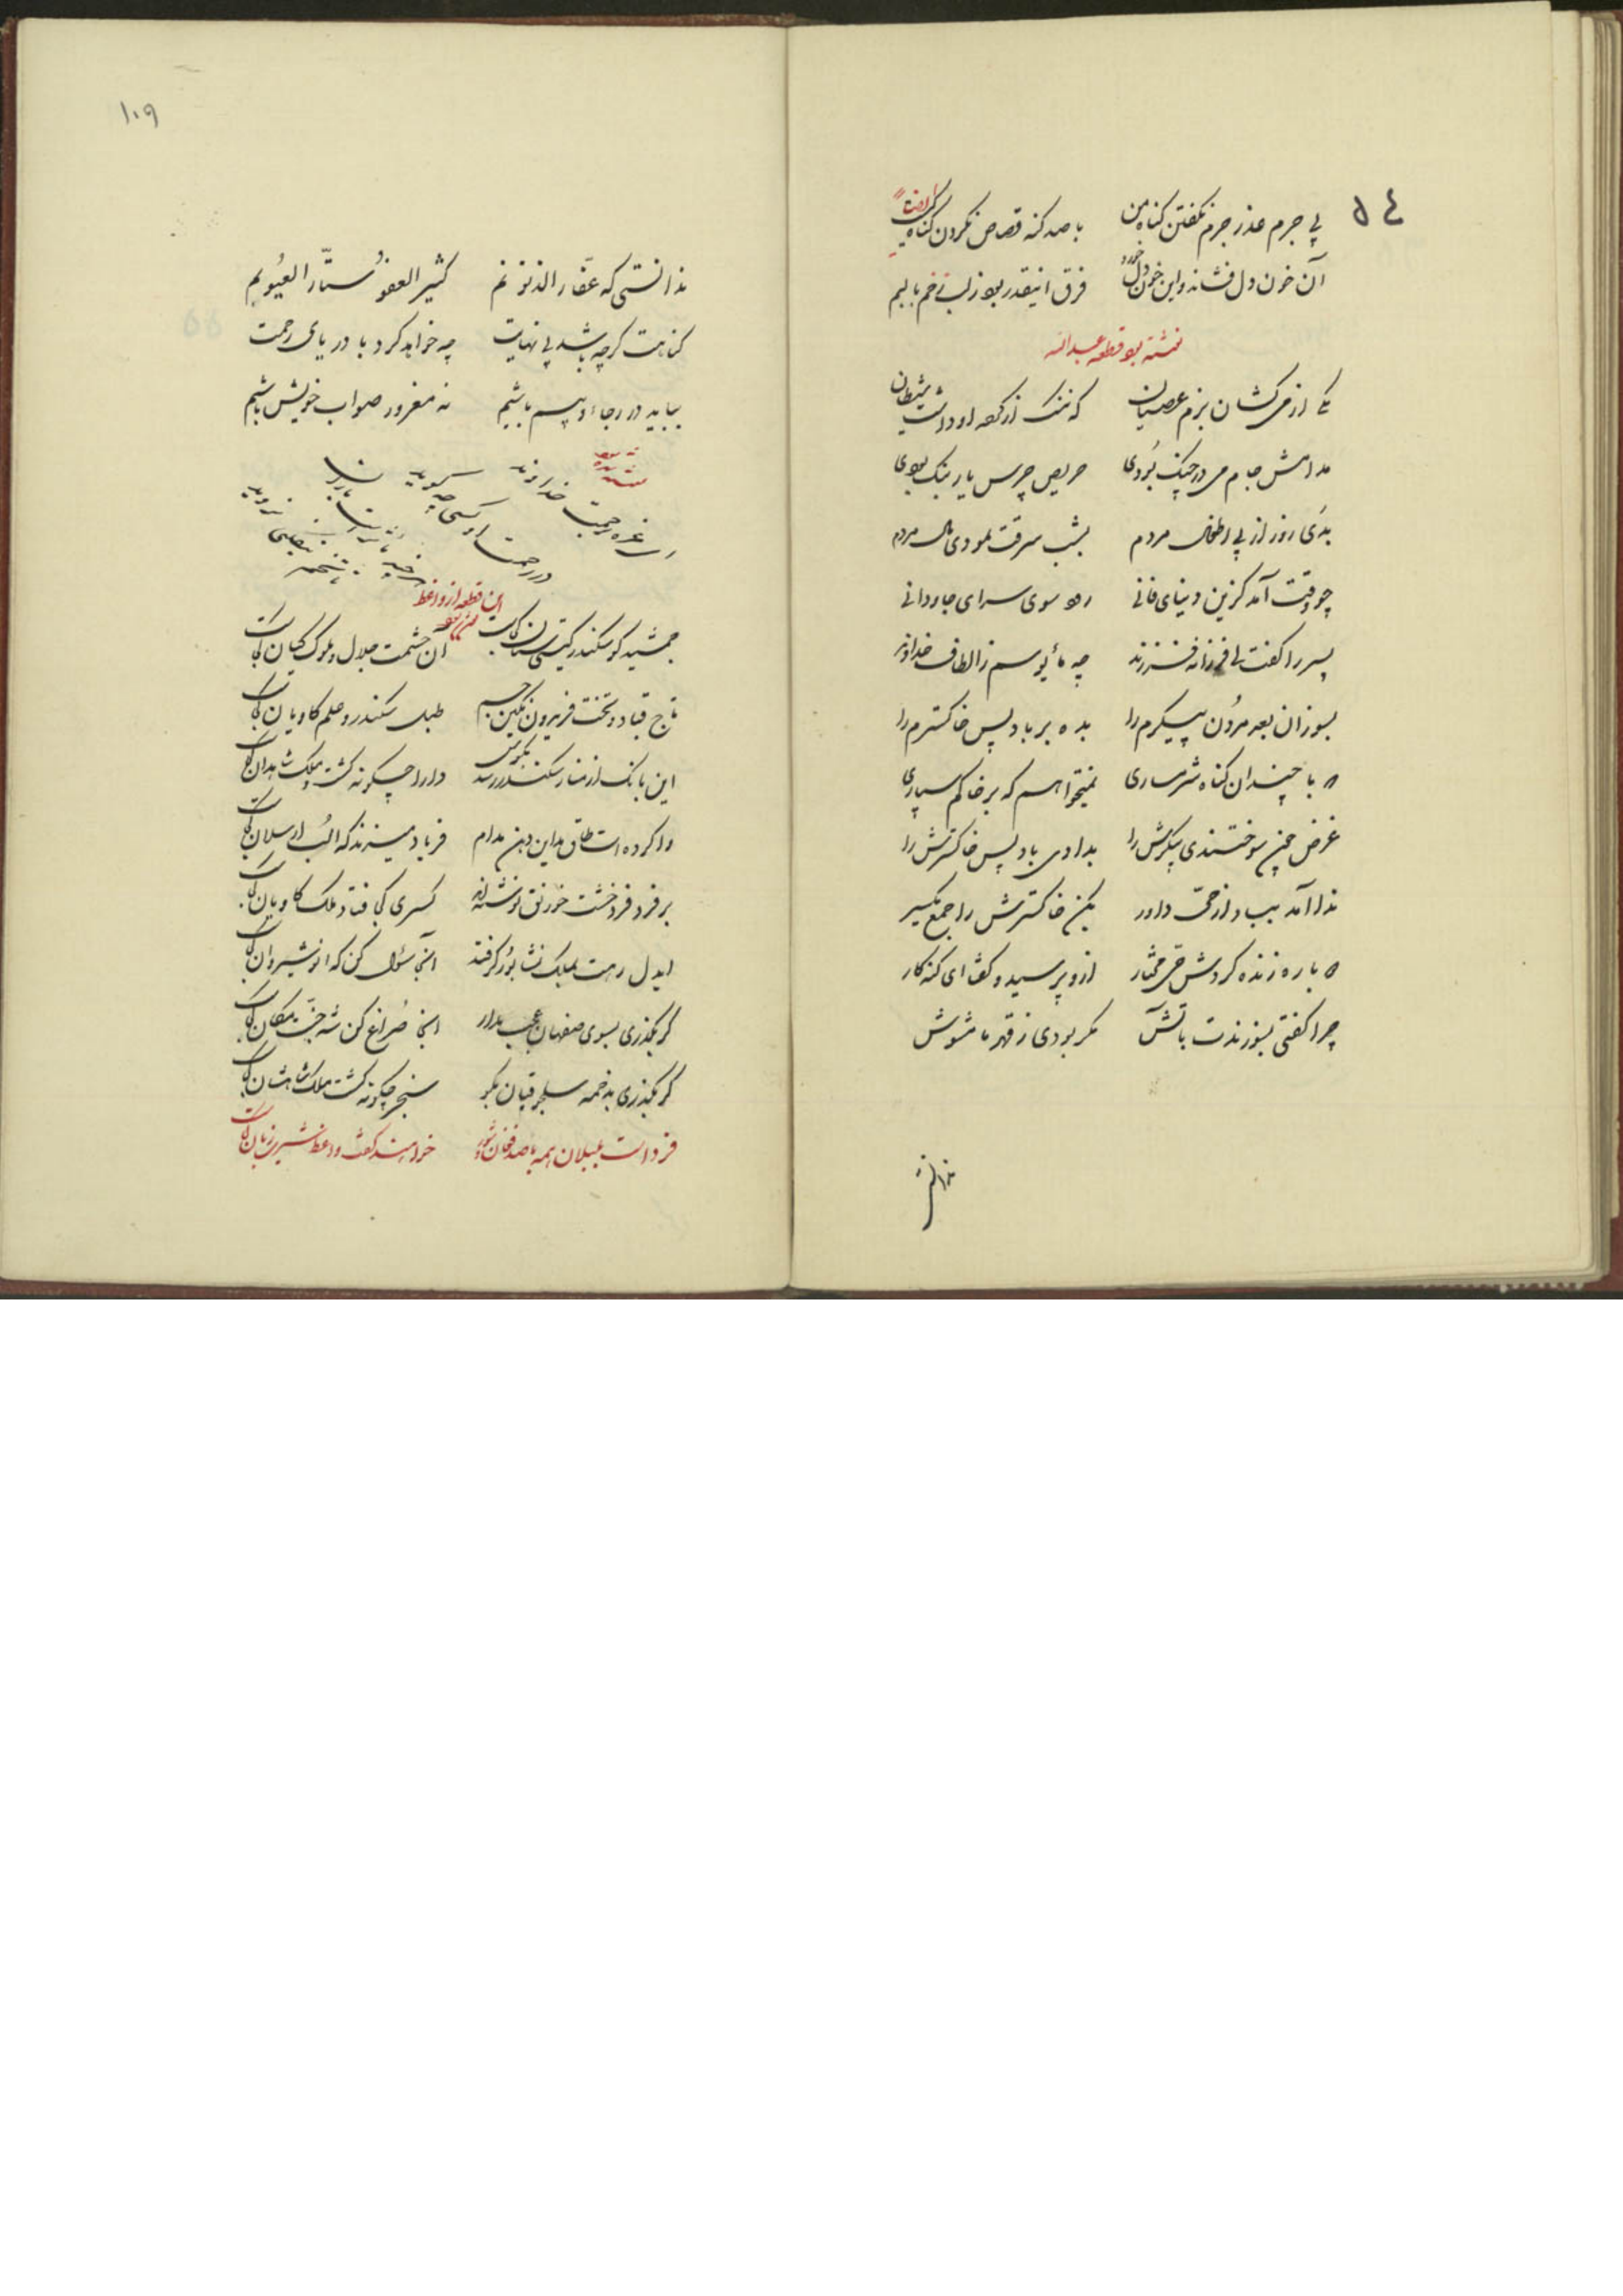 ۵٤
بی جرم عذر جرم نگفتن گناه من با صد گنه قصاص نکردن گناه کیست
ایضاً
آن خون دل فشاند و این خون دل خورد فرق اینقدر بود ز لب زخم تا لبم
نوشته بود قطعه عبدالله
یکی از میکشان بزم عصیان که ننگ از کرده او داشت شیطان
مدامش جام می در چنگ بودی حریص چرس یا بنگ بودی
بدی روز از پی اطفال مردم بشب سرقت نمودی مال مردم
چو وقت آمد کزین دنیای فانی رود سوی سرای جاودانی
پسر را گفت ای فرزانه فرزند چه مأیوسم ز الطاف خداوند
بسوزان بعد مردن پیکرم را بده بر باد پس خاکسترم را
که با چندان گناه شرمساری نمیخواهم که بر خاکم سپاری
غرض چون سوختندی پیکرش را بدادی باد پس خاکسترش را
ندا آمد بباد از حی داور بکن خاکسترش را جمع یکسر
دوباره زنده کردش حی مختار ازو پرسید و گفت ای گنه کار
چرا گفتی بسوزندت باتش مگر بودی ز قهر ما مشوش
ندانستی
۱۰۹
ندانستی که غفار الذنوبم کثیر العفو ستار العیوبم
گناهت گرچه باشد بی نهایت چه خواهد کرد با دریای رحمت
بباید در رجاء و بیم باشیم نه مغرور صواب خویش باشیم
ای غره رحمت خداوند در رحمت او کسی چه گوید
این قطعه از واعظ
جمشید کو سکندر گیتی ستان کجاست آن حشمت جلال و ملوک کیان کجاست
تاج قباد و تخت فریدون نگین جم طبل سکندر و علم کاویان کجاست
این بانگ از منار سکندر رسد بگوش دارا چگونه گشت و ملک شاهدان کجاست
وا کرده است طاق مداین دهن مدام فریاد میزند که الب ارسلان کجاست
بر فرد فرد خشت خورنق نوشته اند کسری کی فتاد ملک کاویان کجاست
ایدل رهت بملک نشابور گر فتد آنجا سئوال کن که انوشیروان کجاست
گر بگذری بسوی صفهان عجب مدار آنجا سراغ کن شه جنت مکان کجاست
گر بگذری بدخمه سلجوقیان بگو سنجر چگونه گشت ملک شاهشان کجاست
فرداست بلبلان همه با صد فغان و شور خواهند گفت واعظ شیرین زبان کجاست